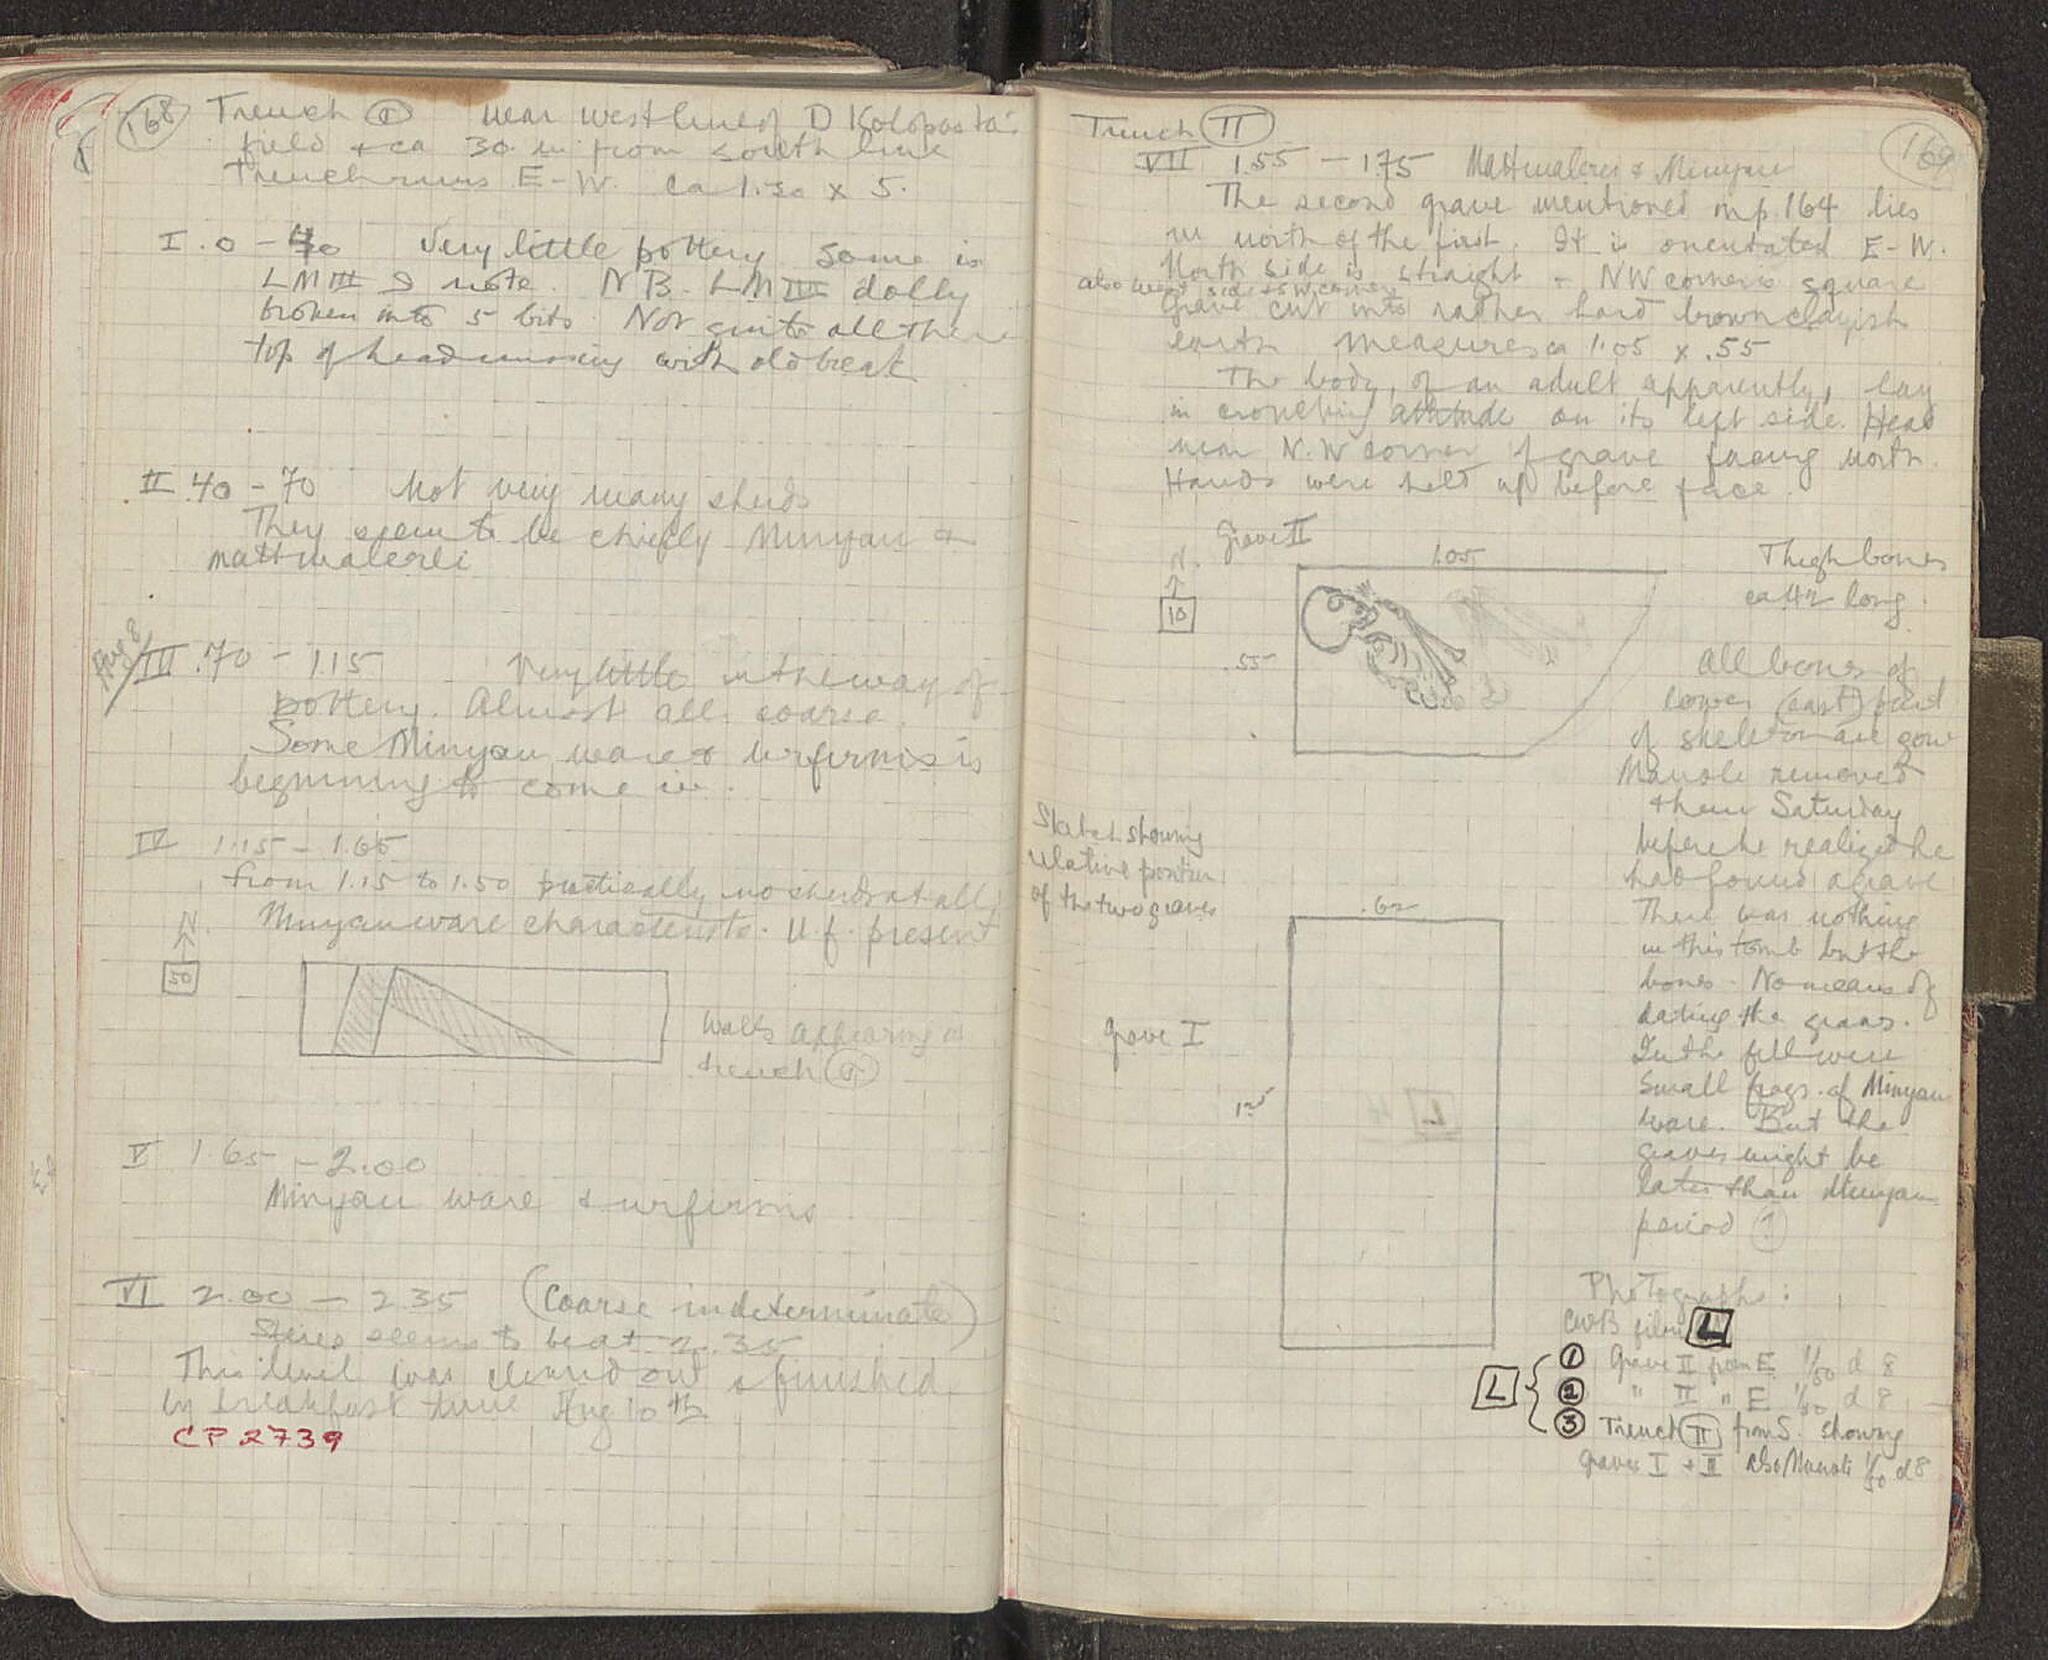 168
Trench a near west line of D Kolopasta's
field + ca 30 m from south line
Trench runs E-W. ca 1.50 x 5.
I .0 - 40 Very little pottery some is
LM III I note. NB. LM III dolly
broken into 5 bits. Not quite all there
top of head missing with old break
II .40 - 70 Not very many sherds
They seem to be chiefly Minyan +
mattmalerei
Aug 8
III .70 - 1.15 Very little in the way of
pottery. Almost all coarse.
Some Minyan ware & urfirnis is
beginning to come in.
IV 1.15 - 1.65
from 1.15 to 1.50 practically no sherds at all
Minyan ware characteristic. U.f. present
N.
50
Walls appearing in
trench a
V 1.65 - 2.00
Minyan ware & urfirnis
VI 2.00 - 2.35 (Coarse indeterminate)
seems to be at 2.35
This level was cleaned out & finished
by breakfast time Aug 10th
CP 2739
169
Trench II
VII 1.55 - 1.75 Mattmalerei & Minyan
The second grave mentioned on p. 164 lies
north of the first. It is orientated E-W.
North side is straight - NW corner is square
also west side & SW corner
Grave cut into rather hard brown clayish
earth measures ca 1.05 x .55
The body, of an adult apparently, lay
in crouching attitude on its left side. Head
near N.W corner of grave facing north.
Hands were held up before face.
Grave II
N.
10
1.05
.55
Thigh bones
ca 42 long.
All bones of
lower (east) part
of skeleton are gone
Manole removed
them Saturday
before he realized he
had found a grave
There was nothing
in this tomb but the
bones. No means of
dating the graves.
In the fill were
small frags. of Minyan
ware. But the
graves might be
later than Minyan
period ?
Sketch showing
relative position
of the two graves
.62
Grave I
L
Photographs:
CWB film L
L
1 Grave II from E 1/50 d 8
2 " II " E 1/50 d 8
3 Trench II from S. showing
graves I + II also Manole 1/50 d 8